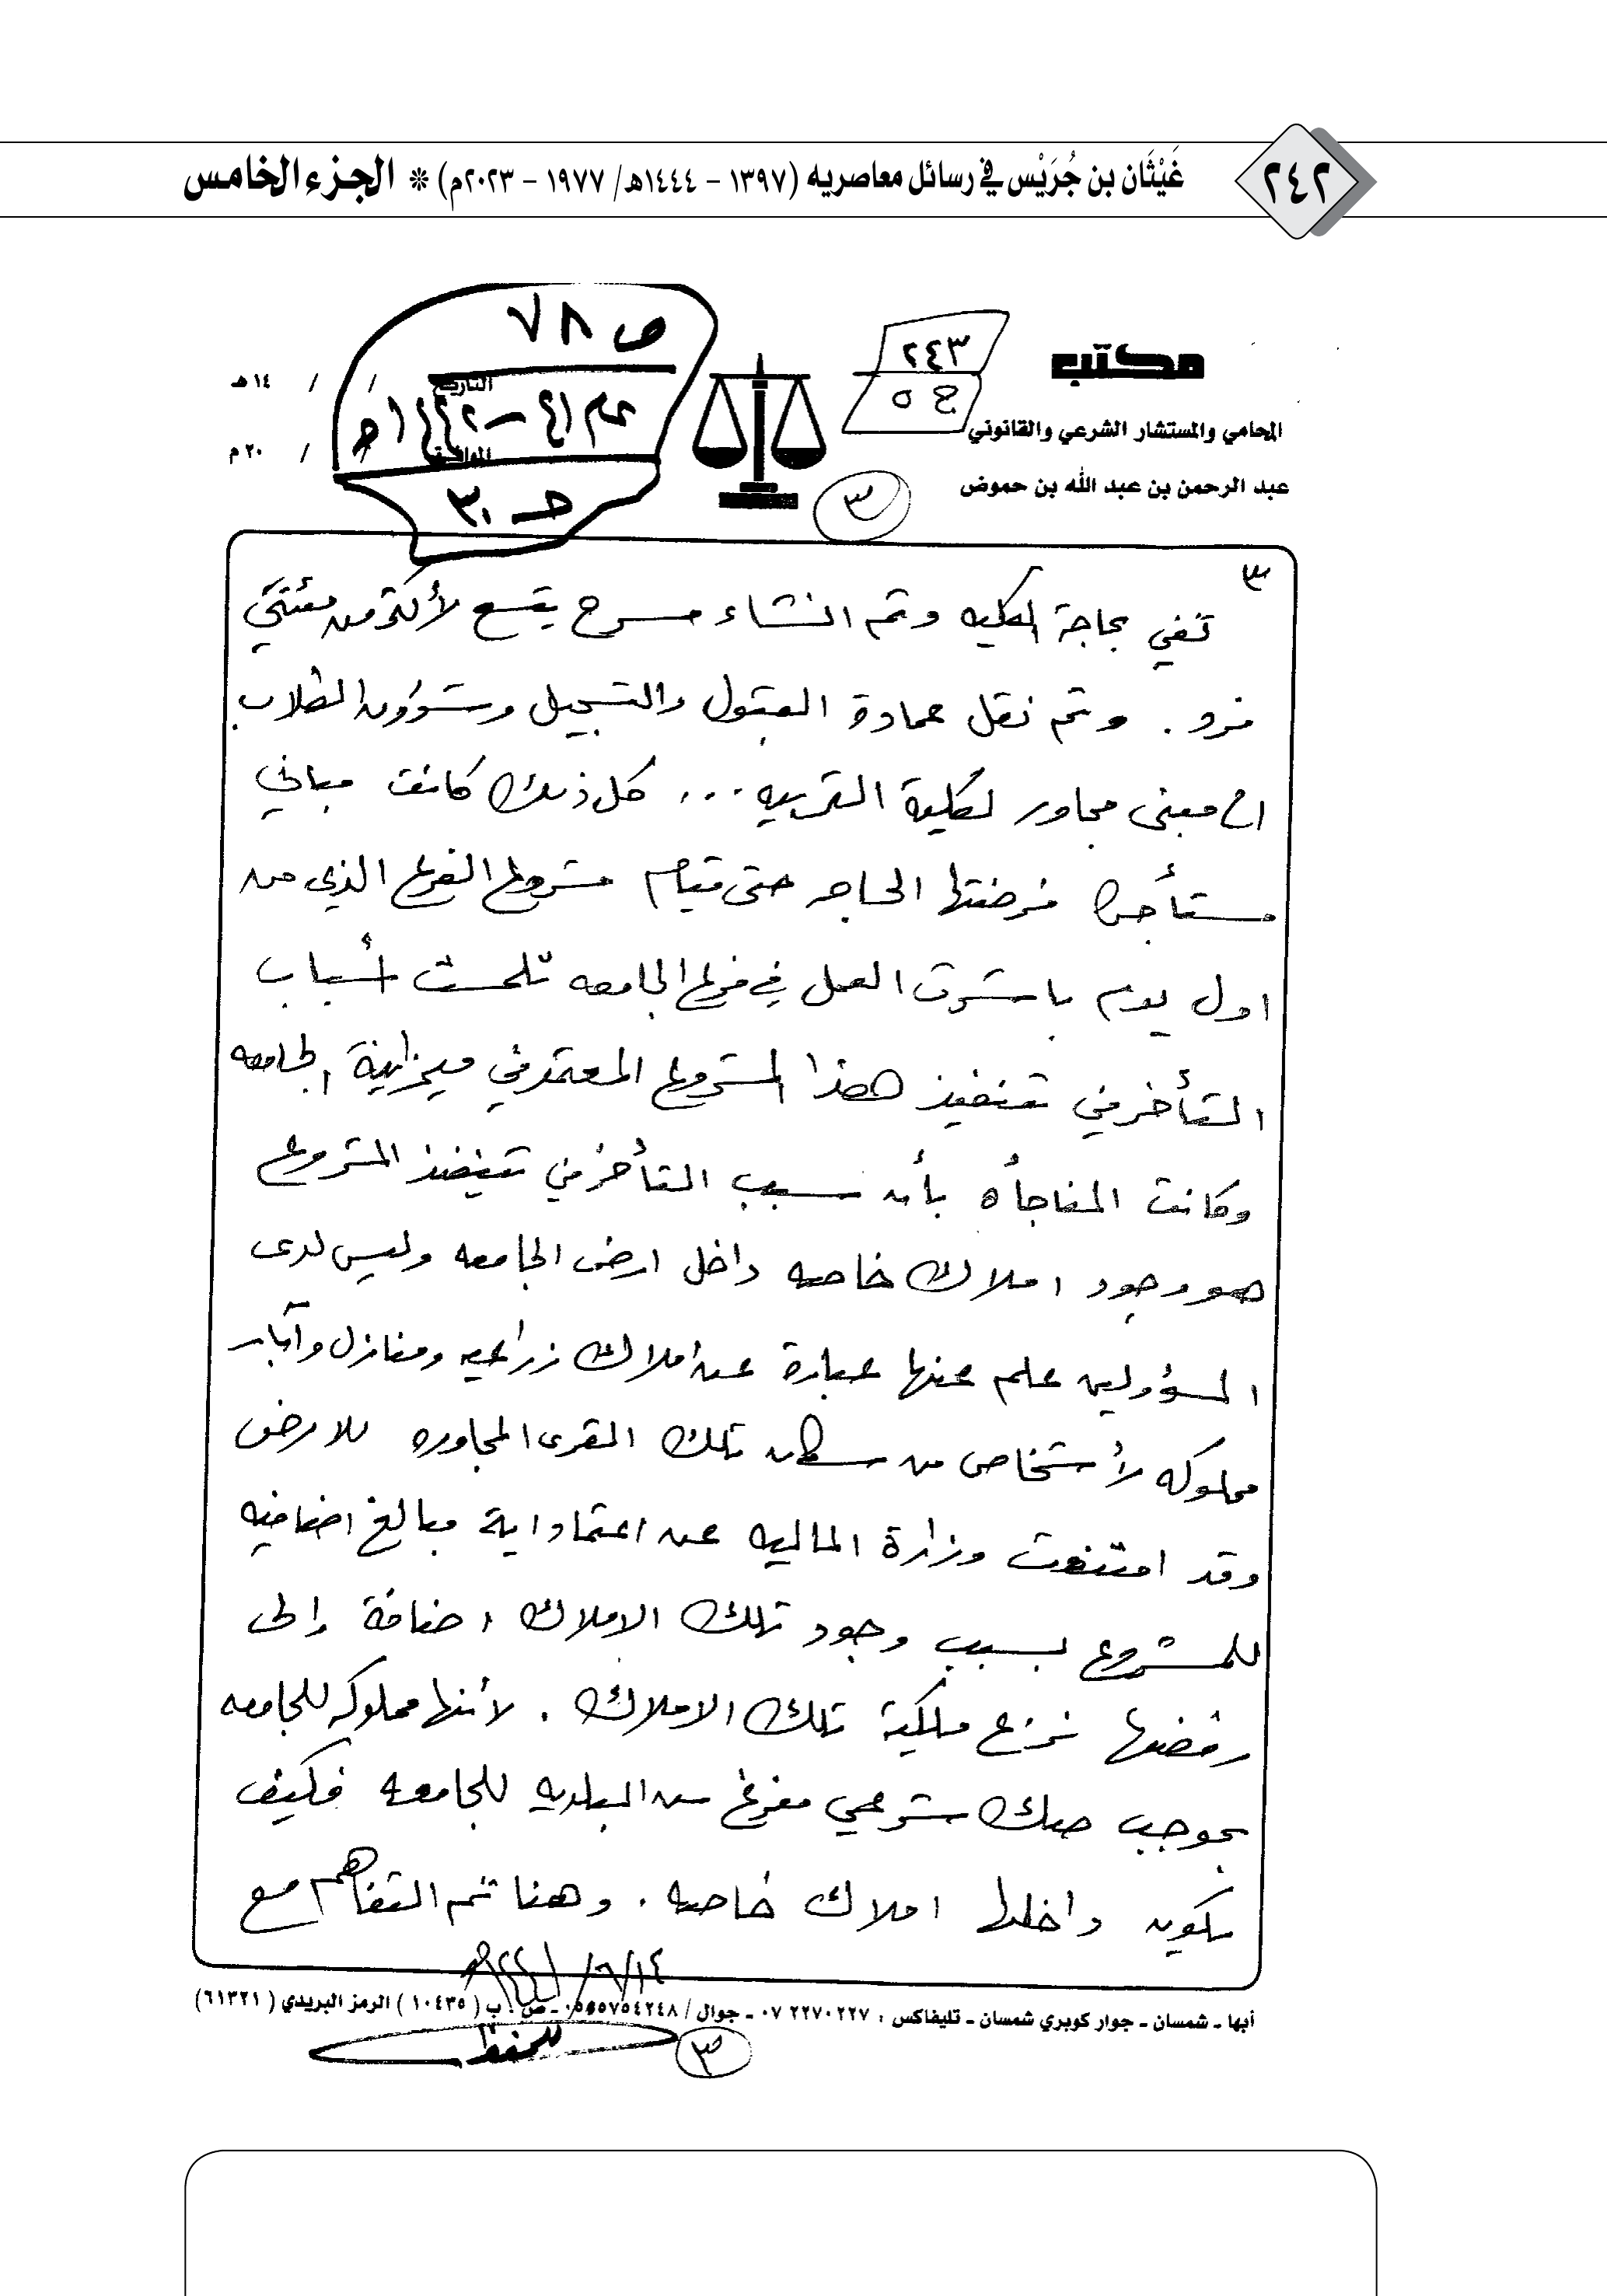 ٢٤٢
غَيْثَان بن جُرَيْس في رسائل معاصريه (١٣٩٧ - ١٤٤٤هـ/ ١٩٧٧ - ٢٠٢٣م) * الجزء الخامس
ص ٧٨
٢٤٣
ج ٥
مكتب
التاريخ / / ١٤هـ
عام ٤١-١٤٤٢هـ
المحامي والمستشار الشرعي والقانوني
الموافق / / ٢٠م
عبد الرحمن بن عبد الله بن حموض
٣
٣
تفي بحاجة الكليه وتم انشاء مسرح يتسع لأكثر من مئتي
فرد . وتم نقل عمادة القبول والتسجيل وشؤون الطلاب
الى مبنى مجاور لكلية التربيه ... كل ذلك كانت مباني
مستأجره فرضتها الحاجه حتى قيام مشروع الفرع الذي من
اول يوم باشرت العمل في فرع الجامعه تلمست أسباب
التأخر في تنفيذ هذا المشروع المعتمد في ميزانية الجامعه
وكانت المفاجأه بأن سبب التأخر في تنفيذ المشروع
هو وجود املاك خاصه داخل ارض الجامعه وليس لدى
المسؤولين علم عنها عبارة عن املاك زراعيه ومنازل وآبار
مملوكه لأشخاص من سكان تلك القرى المجاوره للارض
وقد امتنعت وزارة الماليه عن اعتماد اية مبالغ اضافيه
للمشروع بسبب وجود تلك الاملاك اضافة إلى
رفضها نزع ملكية تلك الاملاك . لأنها مملوكه للجامعه
بموجب صك شرعي مفرغ من البلديه للجامعه فكيف
يكون داخلها املاك خاصه . وهنا تم التفاهم مع
أبها - شمسان - جوار كوبري شمسان - تليفاكس : ٢٢٧٠٢٢٧ ٠٧ - جوال / ٠٥٥٥٧٥٤٢٤٨ - ص . ب ( ١٠٤٣٥ ) الرمز البريدي ( ٦١٣٢١ )
٣
للحفظ